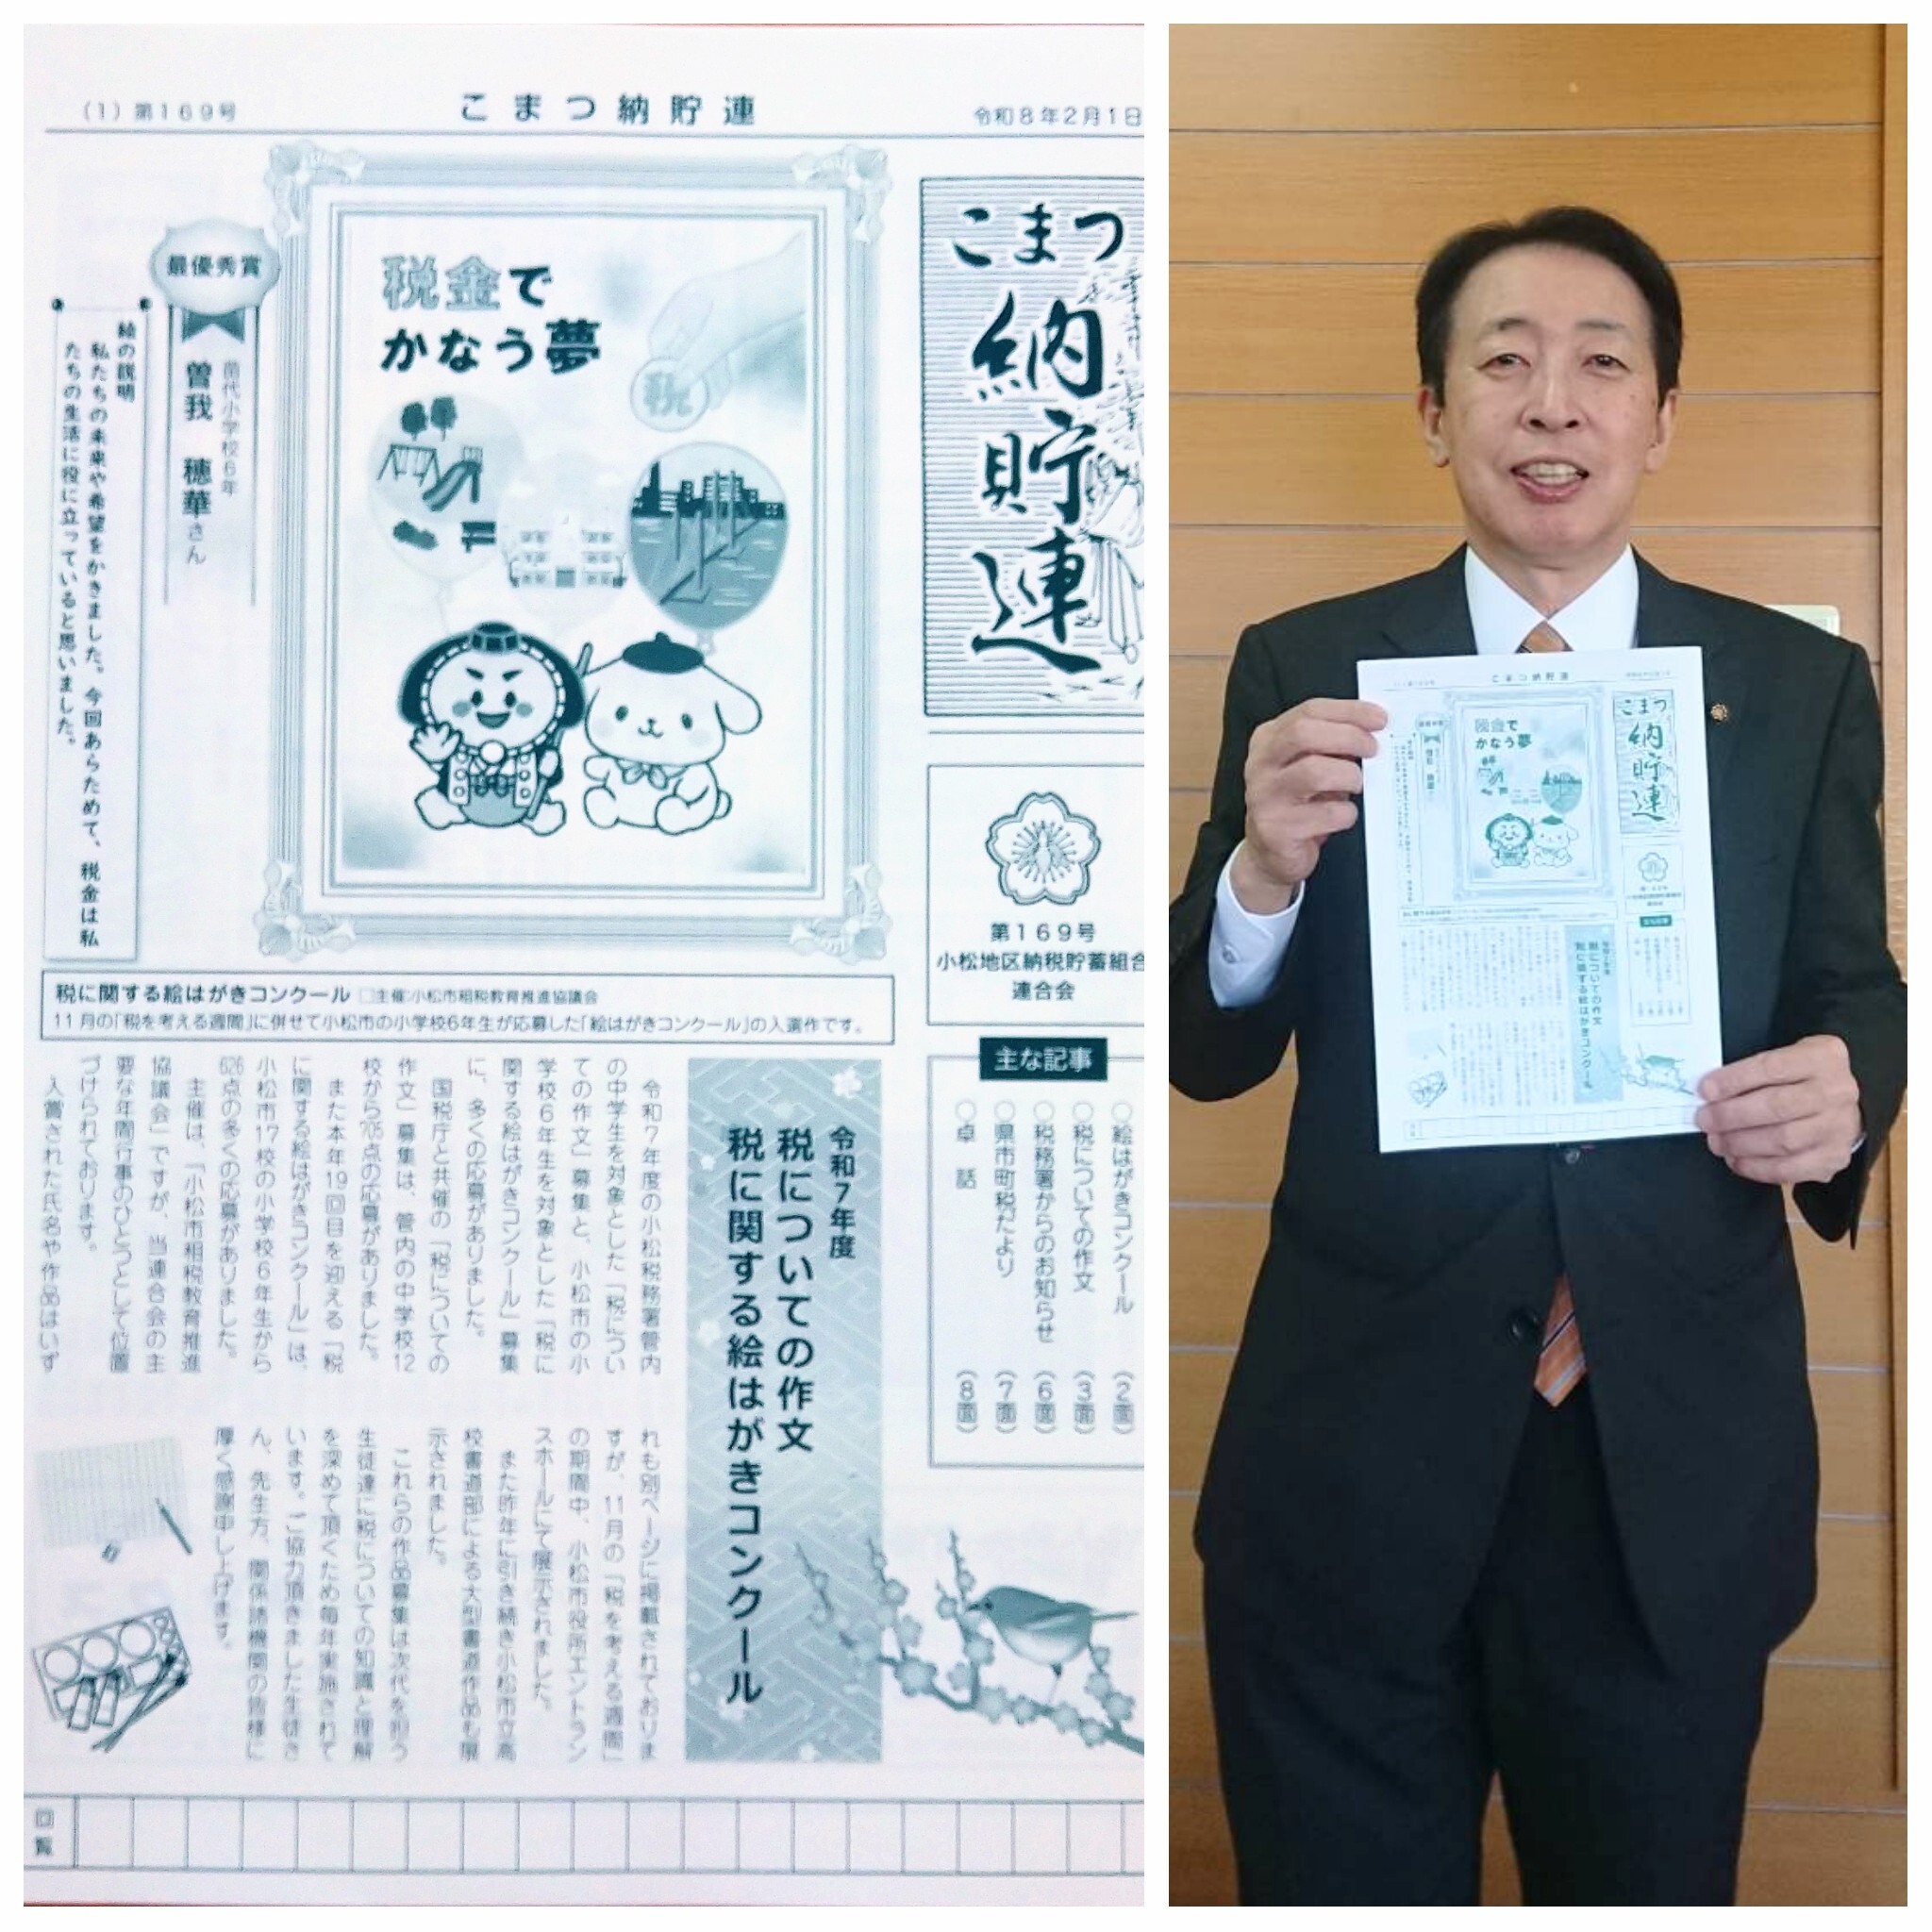 (1) 第169号
こまつ納貯連
令和8年2月1日
こまつ
納貯連
第169号
小松地区納税貯蓄組合
連合会
主な記事
○絵はがきコンクール (2面)
○税についての作文 (3面)
○税務署からのお知らせ (6面)
○県市町税だより (7面)
○卓 話 (8面)
税金で
かなう夢
税
最優秀賞
苗代小学校6年
曽我 穂華さん
絵の説明
私たちの未来や希望をかきました。今回あらためて、税金は私
たちの生活に役に立っていると思いました。
税に関する絵はがきコンクール □主催:小松市租税教育推進協議会
11月の「税を考える週間」に併せて小松市の小学校6年生が応募した「絵はがきコンクール」の入選作です。
令和7年度
税についての作文
税に関する絵はがきコンクール
令和7年度の小松税務署管内
の中学生を対象とした「税につい
ての作文」募集と、小松市の小
学校6年生を対象とした「税に
関する絵はがきコンクール」募集
に、多くの応募がありました。
国税庁と共催の「税についての
作文」募集は、管内の中学校12
校から705点の応募がありました。
また本年19回目を迎える「税
に関する絵はがきコンクール」は、
小松市17校の小学校6年生から
626点の多くの応募がありました。
主催は、「小松市租税教育推進
協議会」ですが、当連合会の主
要な年間行事のひとつとして位置
づけられております。
入賞された氏名や作品はいず
れも別ページに掲載されておりま
すが、11月の「税を考える週間」
の期間中、小松市役所エントラン
スホールにて展示されました。
また昨年に引き続き小松市立高
校書道部による大型書道作品も展
示されました。
これらの作品募集は次代を担う
生徒達に税についての知識と理解
を深めて頂くため毎年実施されて
います。ご協力頂きました生徒さ
ん、先生方、関係諸機関の皆様に
厚く感謝申し上げます。
回覧
こまつ納貯連
税金で
かなう夢
こまつ
納貯連
税についての作文
税に関する絵はがきコンクール